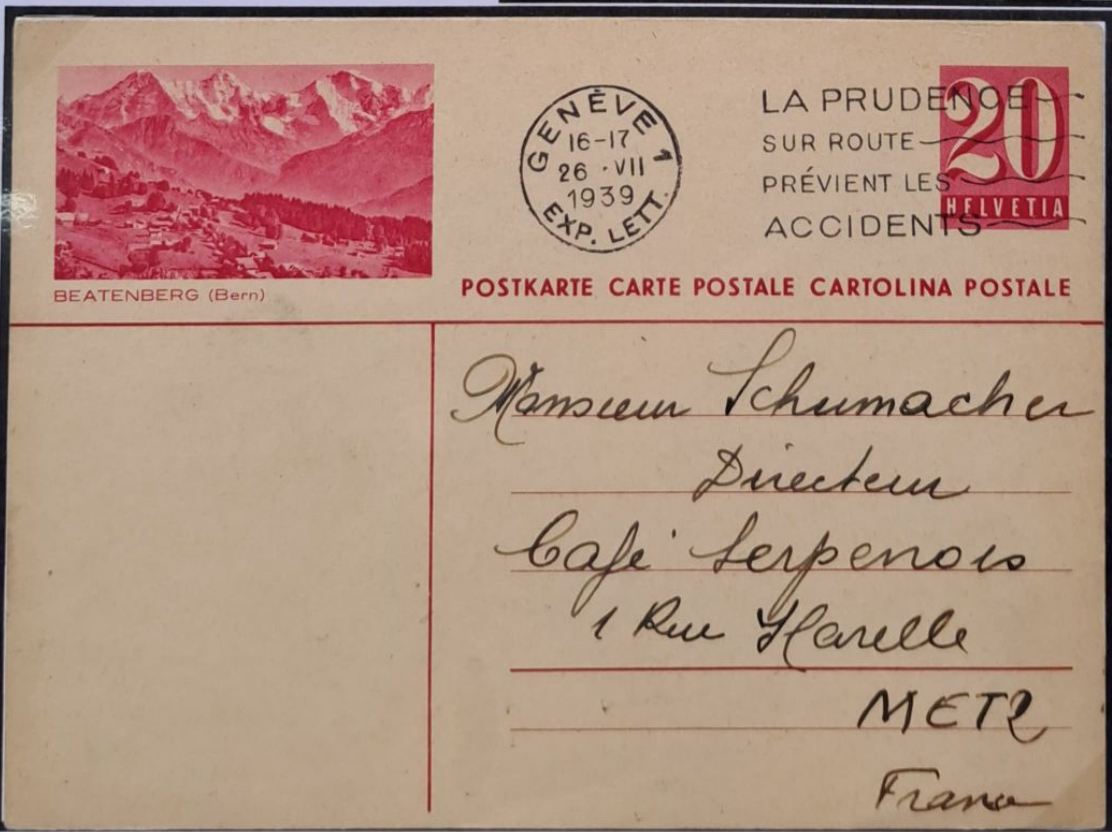 BEATENBERG (Bern)
GENÈVE 1
16-17
26·VII
1939
EXP. LETT.
LA PRUDENCE
SUR ROUTE
PRÉVIENT LES
ACCIDENTS
20
HELVETIA
POSTKARTE CARTE POSTALE CARTOLINA POSTALE
Monsieur Schumacher
Directeur
Café Serpenois
1 Rue Harelle
METZ
France